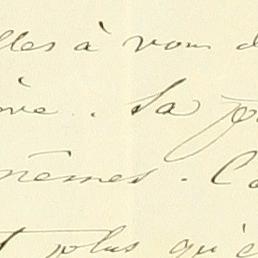 lles à vous d
ère. Sa po
mêmes. Ca
t plus qu'e